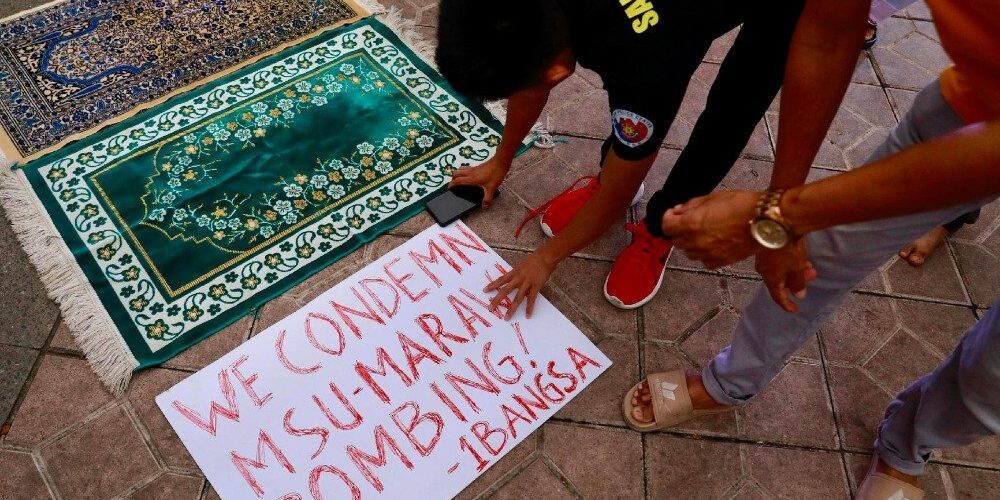 WE CONDEMN
MSU-MARAWI
BOMBING!
-1BANGSA